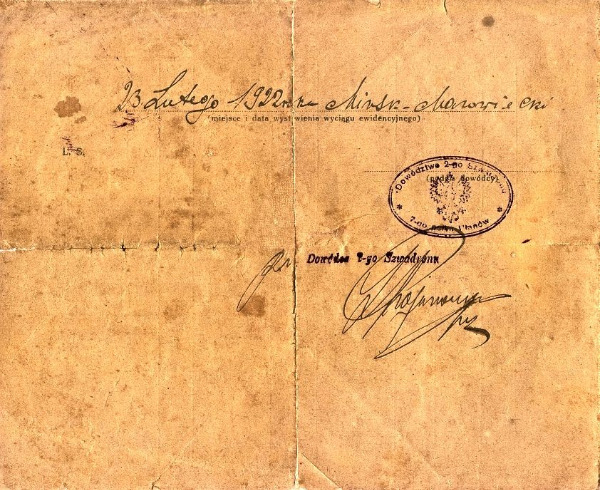 23 Lutego 1922 roku Mińsk-Mazowiecki
(miejsce i data wystawienia wyciągu ewidencyjnego)
L. S.
Dowództwo 2-go Szwadronu
(podpis dowódcy)
7-go Pułku Ułanów
Dowódca 2-go Szwadronu